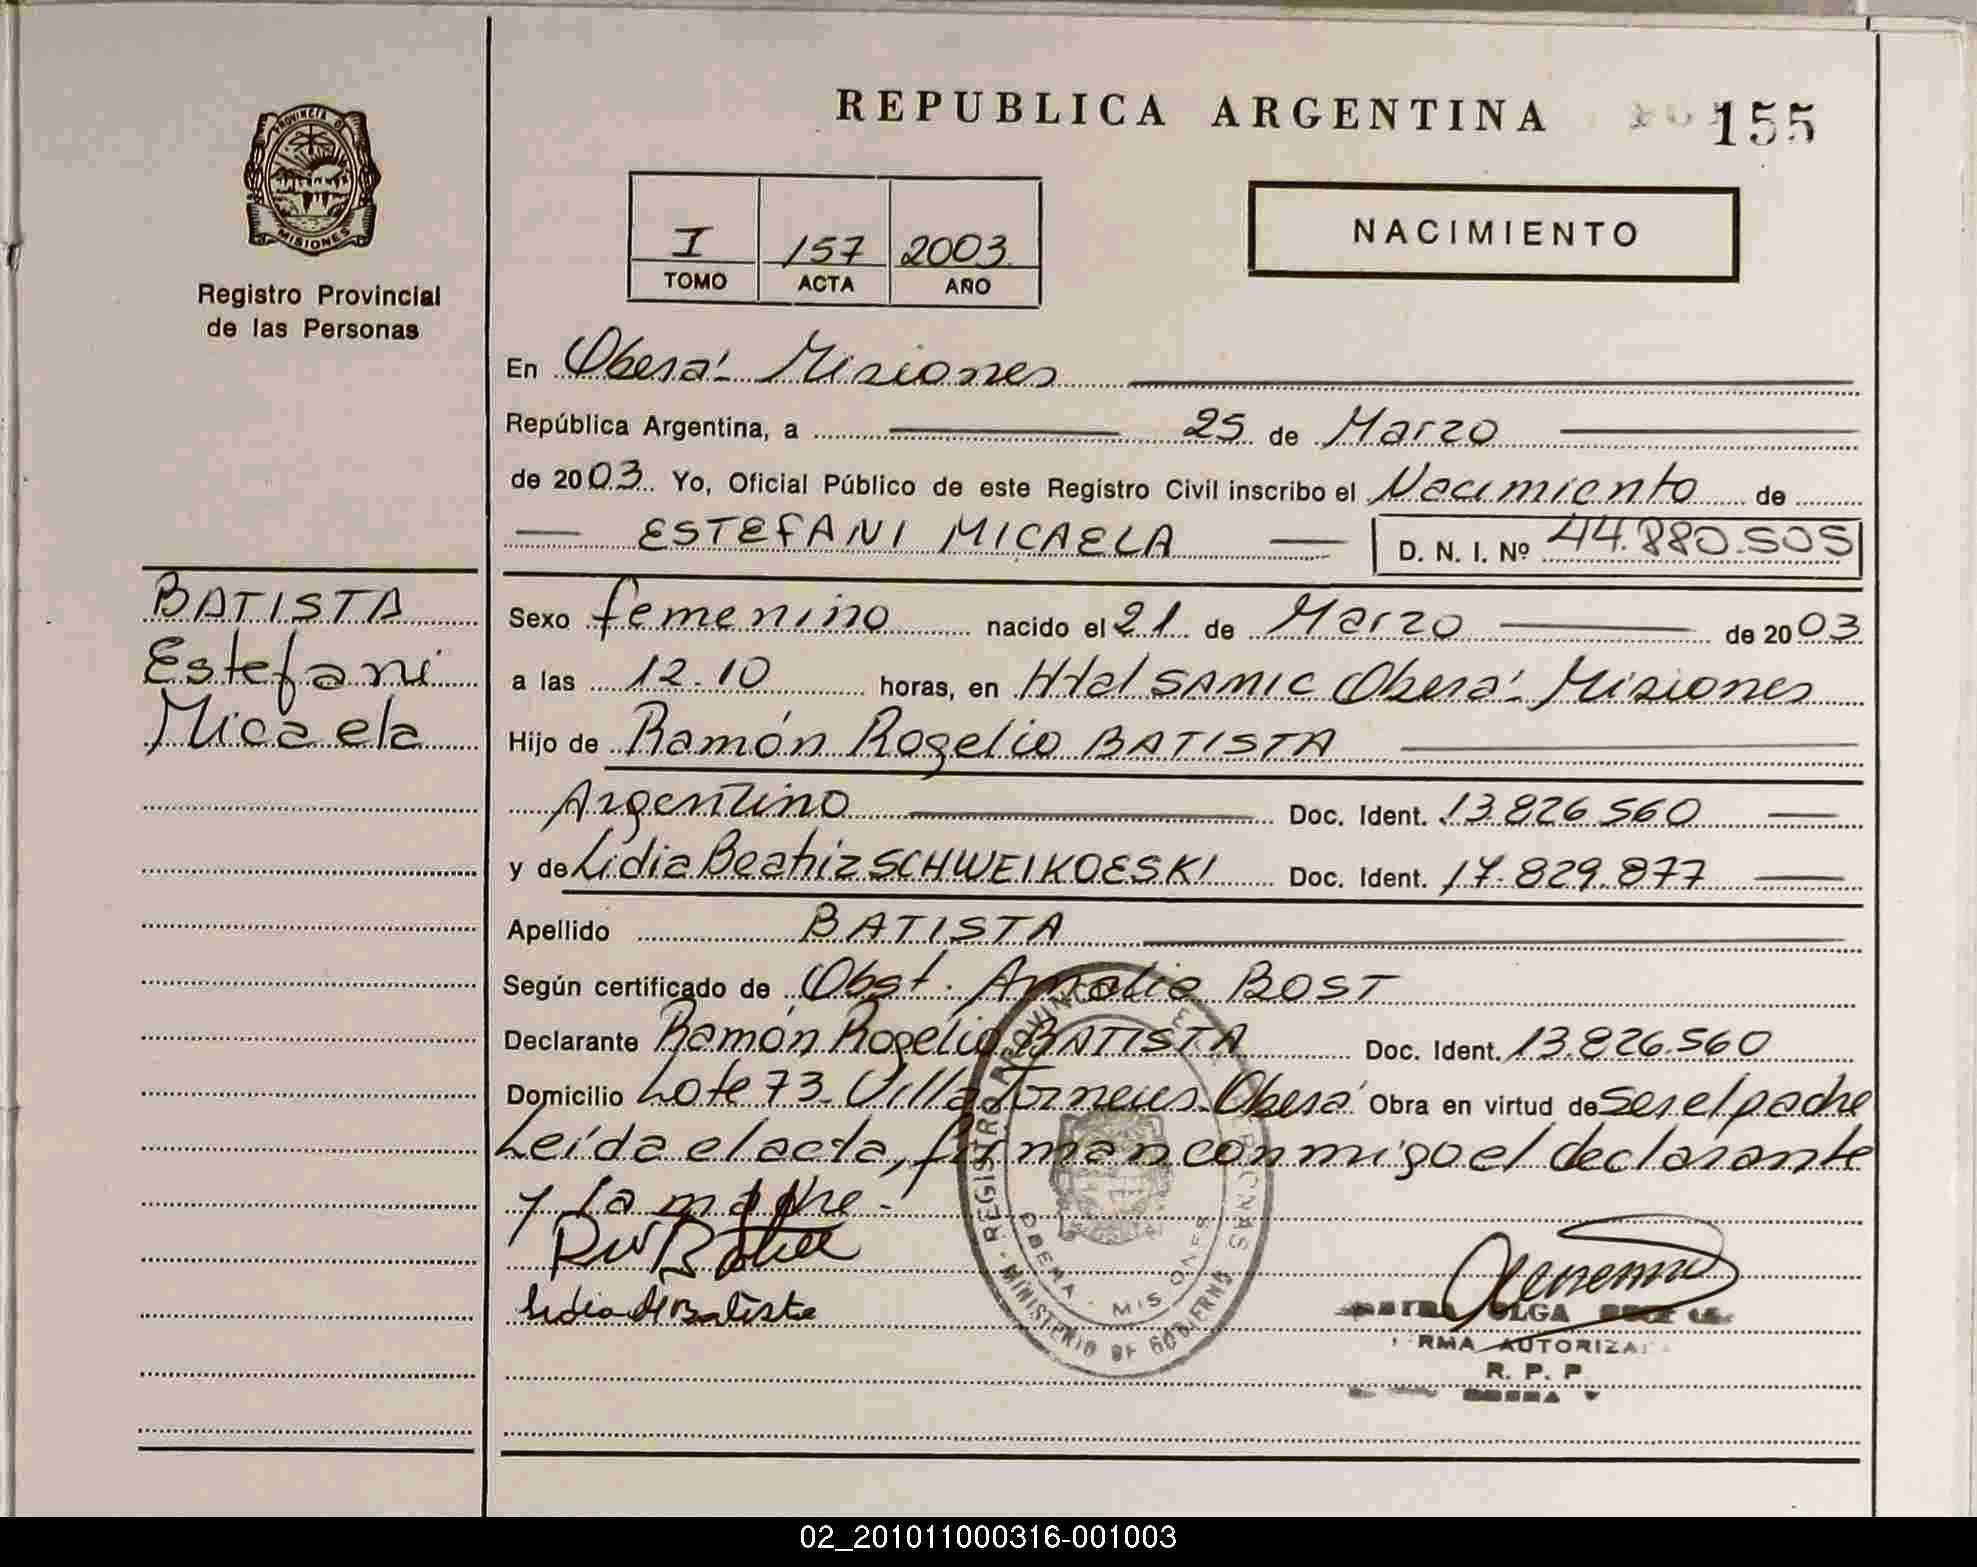 REPUBLICA ARGENTINA
155
PROVINCIA DE
MISIONES
Registro Provincial
de las Personas
I 157 2003
TOMO ACTA AÑO
NACIMIENTO
En Oberá - Misiones
República Argentina, a 25 de Marzo
de 2003. Yo, Oficial Público de este Registro Civil inscribo el Nacimiento de
ESTEFANI MICAELA D. N. I. Nº 44.880.505
BATISTA
Estefani
Micaela
Sexo femenino nacido el 21 de Marzo de 2003
a las 12.10 horas, en Htal SAMIC Oberá - Misiones
Hijo de Ramón Rogelio BATISTA
Argentino Doc. Ident. 13.826.560
y de Lidia Beatriz SCHWEIKOESKI Doc. Ident. 17.829.877
Apellido BATISTA
Según certificado de Obst. Amalia BOST
Declarante Ramón Rogelio BATISTA Doc. Ident. 13.826.560
Domicilio Lote 73 - Villa Oberá Obra en virtud de ser el padre
Leída el acta, firman conmigo el declarante
y la madre.-
Lidia de Batista
REGISTRO PROVINCIAL DE PERSONAS
MINISTERIO DE GOBIERNO
OBERA - MISIONES
OLGA
AUTORIZA
R. P. P
OBERA
02_201011000316-001003